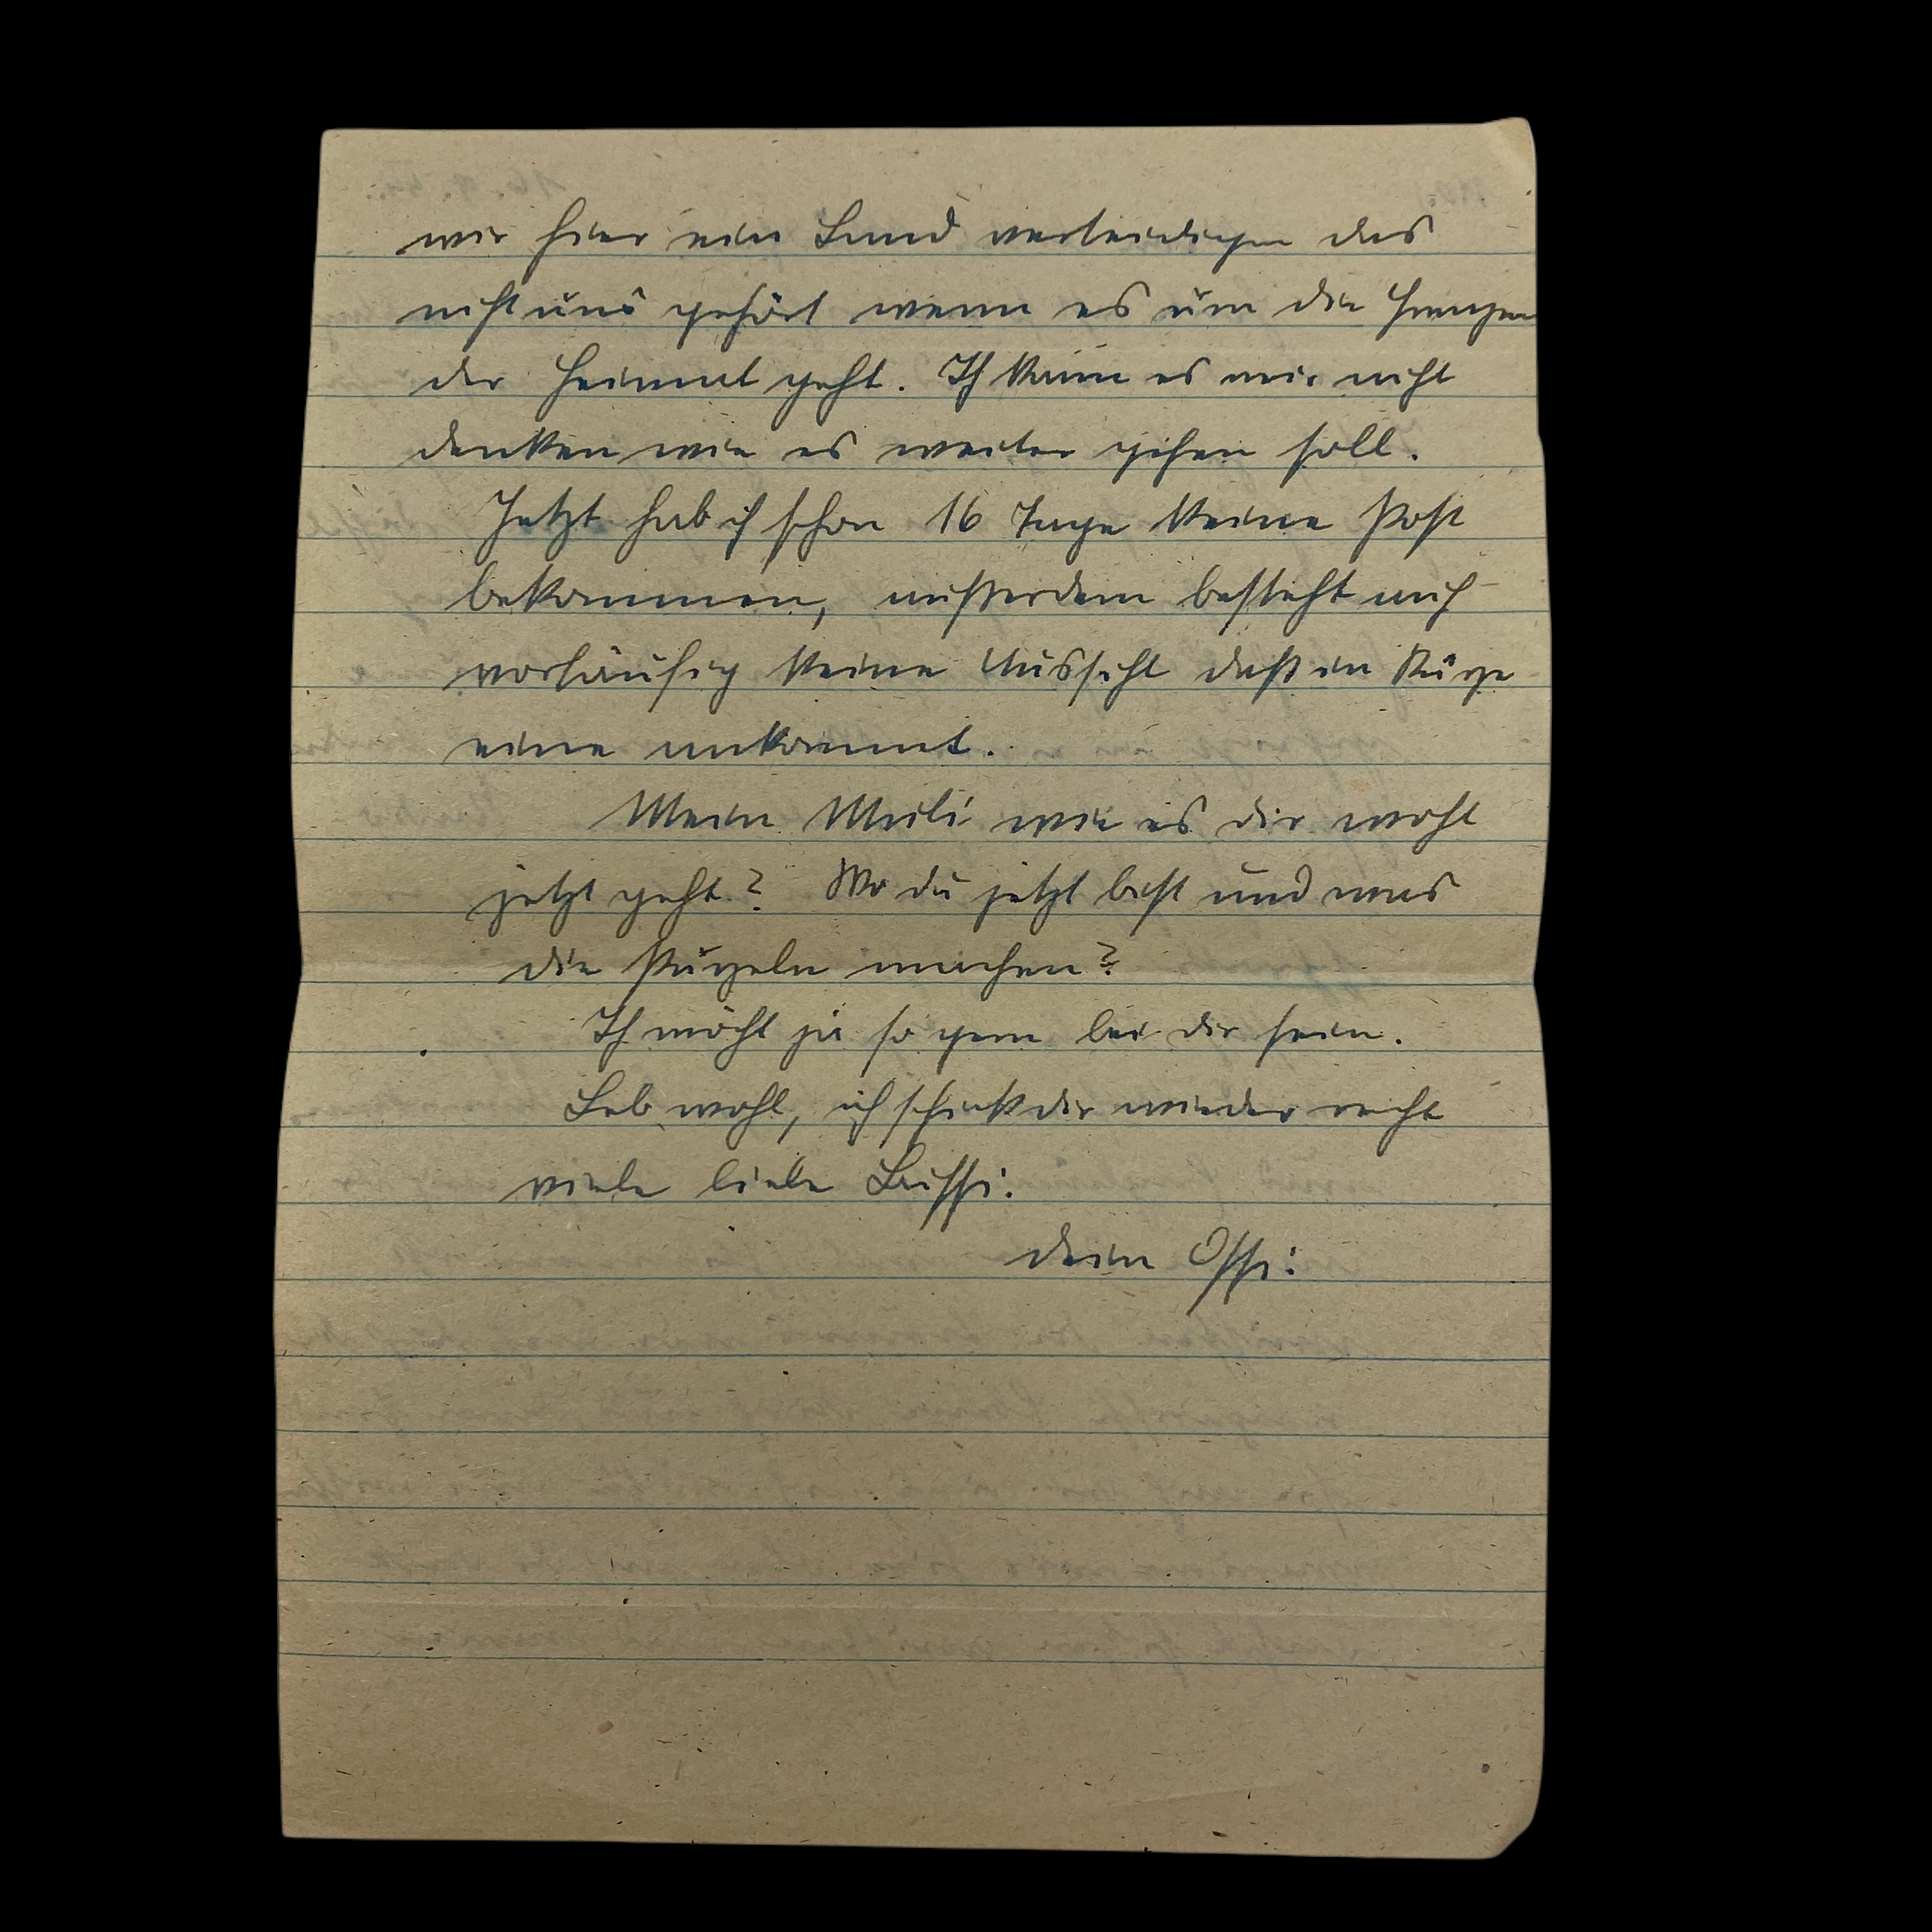 wir hier ein Land verteidigen das
nicht uns gehört wenn es um die Grenzen
der Heimat geht. Ich kann es mir nicht
denken wie es weiter gehen soll.
Jetzt hab ich schon 16 Tage keine Post
bekommen, außerdem besteht auch
vorläufig keine Aussicht daß in Kürze
eine ankommt.
Mein Muli wie es dir wohl
jetzt geht? Wo du jetzt bist und was
die Putzeln machen?
Ich möcht ja so gern bei dir sein.
Leb wohl, ich schick dir wieder recht
viele liebe Bussi.
dein Ossi.